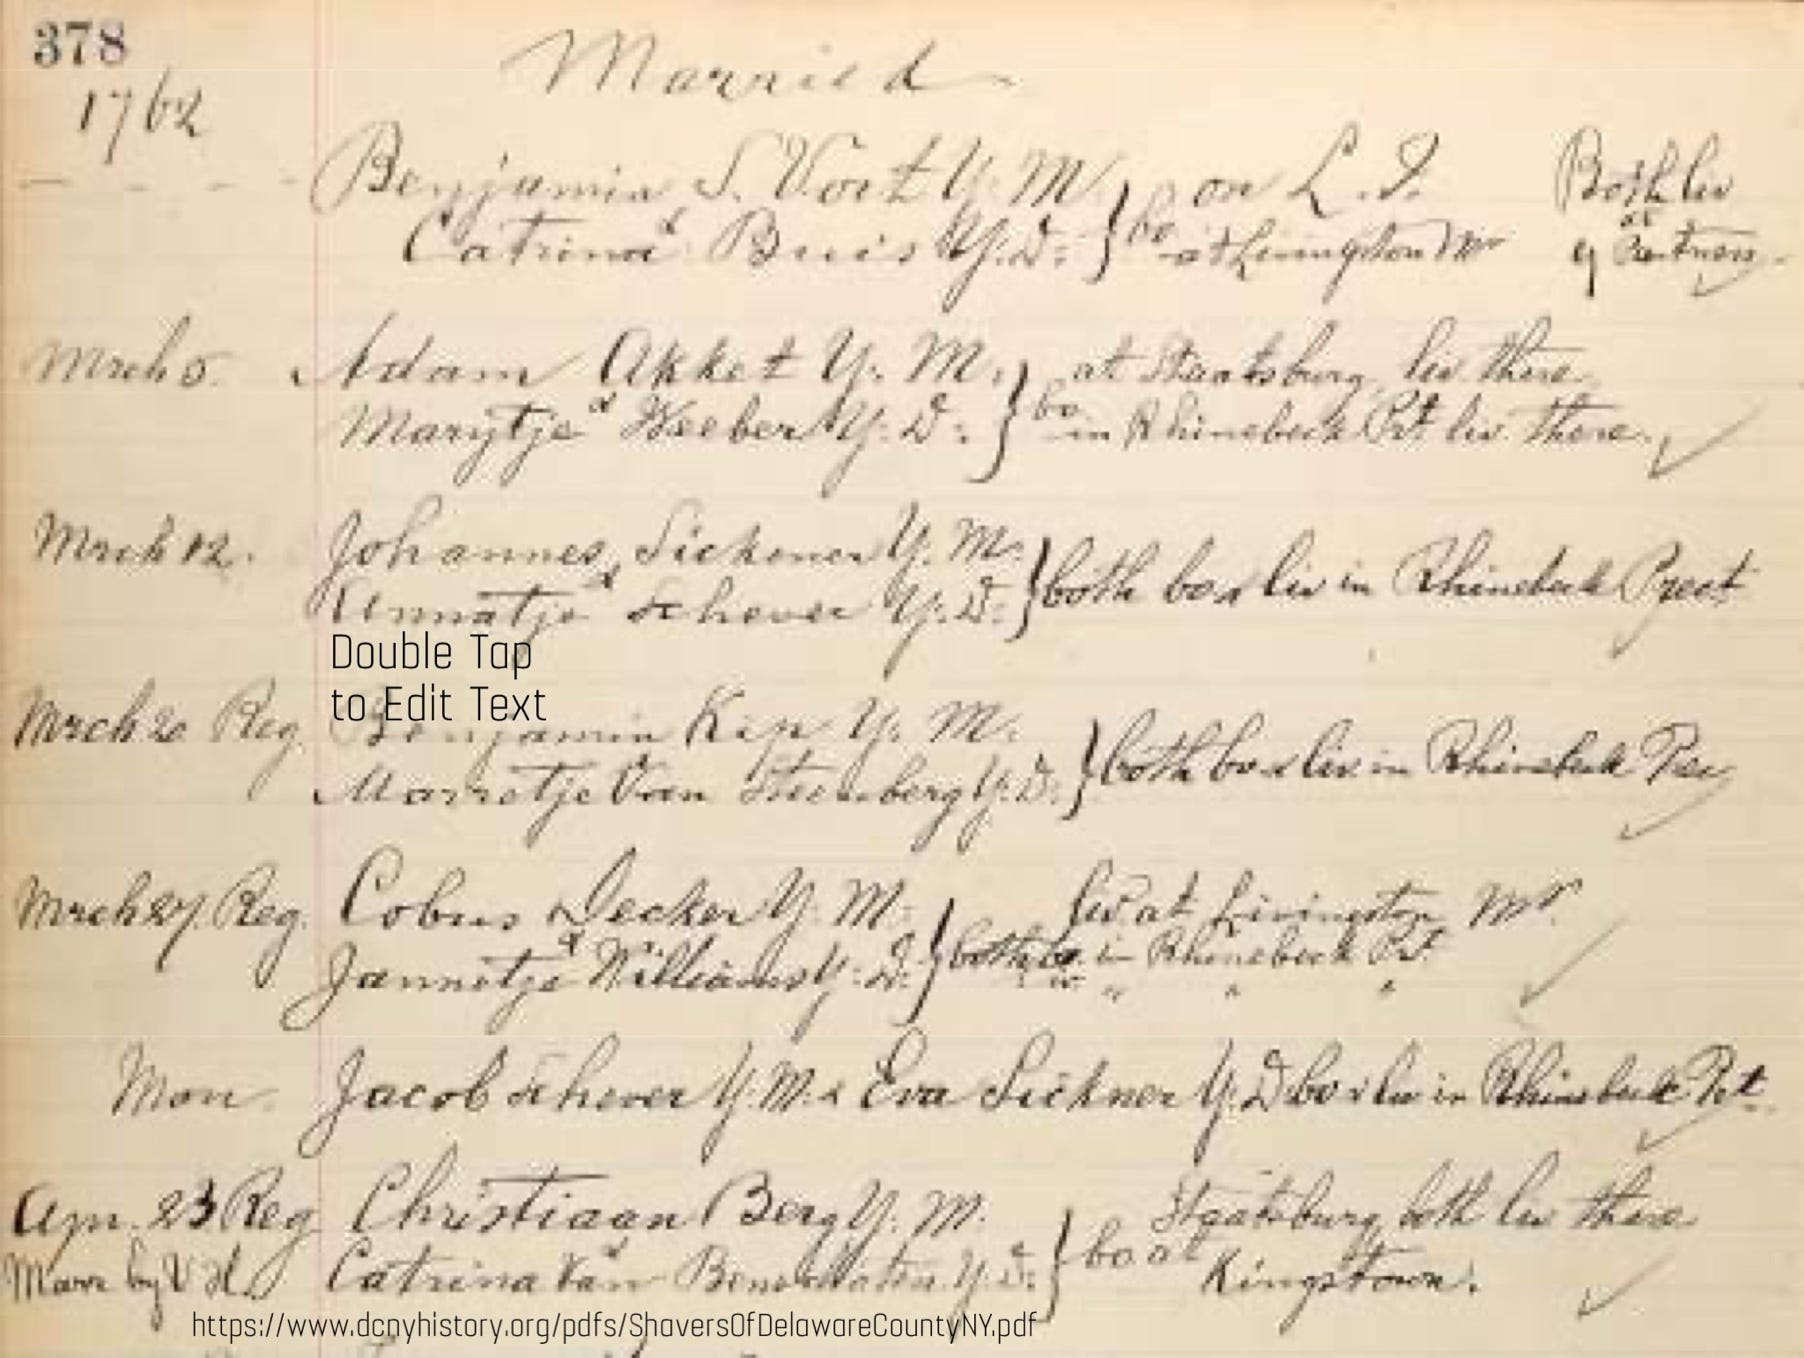 378
1762
Married
Benjamin S. Vort Y. M. on L. I. Both liv
& at
Catrina Buis Y. D. } bo at Livingston Mr
Mrch 5. Adam Akket Y. M. at Staatsburg liv. there
Marytje & Weeber Y. D. } bo in Rhinebeck Prt. liv. there
Mrch 12. Johannes Sickener Y. M.
Annatje & Schever Y. D. } both bo & liv in Rhinebeck Prect
Double Tap
to Edit Text
Mrch 20 Reg. Benjamin Kip Y. M.
Marretje Van Steenberg Y. D. } both bo & liv in Rhinebeck
Mrch 27. Reg. Cobus Decker Y. M. liv. at Livingston Mr.
Jannetje & Williams Y. D. } both bo. in Rhinebeck Prt.
" " "
Mon. Jacob Schever Y. M. & Eva Sickner Y. D bo & liv in Rhinebeck Prt.
Apr. 23 Reg Christiaan Berg Y. M. Staatsburg both liv there
Marr by V H. Catrina Van Y. D. } bo at Kingstown.
https://www.dcnyhistory.org/pdfs/ShaversOfDelawareCountyNY.pdf